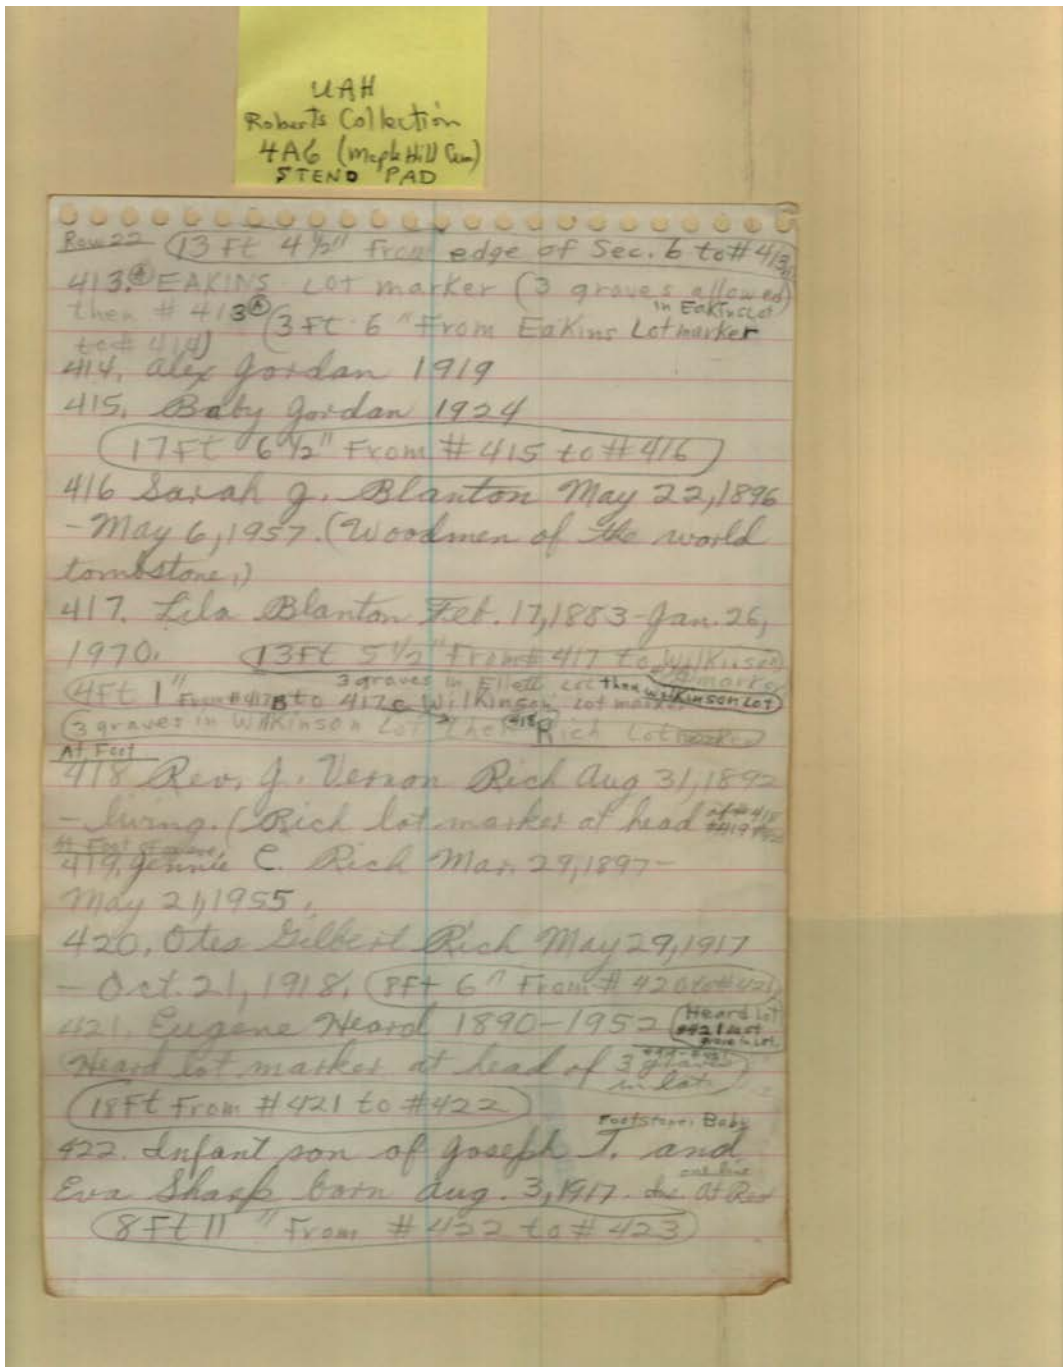 UAH
Roberts Collection
4A6 (Maple Hill Cem)
STENO PAD
Row 22 (13 Ft 4 1/2" From edge of Sec. 6 to # 413
413. Ⓐ EAKINS Lot marker (3 graves allowed)
in Eakins Lot
then # 413 Ⓐ (3 Ft 6" From Eakins Lot marker
to # 414)
414. Alex Jordan 1919
415. Baby Jordan 1924
(17 Ft 6 1/2" From # 415 to # 416)
416 Sarah J. Blanton May 22, 1896
- May 6, 1957. (Woodmen of the world
tombstone.)
417. Lila Blanton Feb. 17, 1883 - Jan. 26,
1970. (13 Ft 5 1/2" From # 417 to Wilkinson
marker
3 graves in Ellett Lot then Wilkinson Lot)
(4 Ft 1" From # 417B to 417C Wilkinson Lot marker
(3 graves in Wilkinson Lot then 418 Rich Lot
At Foot
418 Rev. J. Vernon Rich Aug 31, 1892
- living. (Rich lot marker at head of # 418
# 419
At Foot of grave
419. Jennie C. Rich Mar. 29, 1897 -
May 21, 1955.
420. Otes Gilbert Rich May 29, 1917
- Oct. 21, 1918. (8 Ft 6" From # 420 to # 421)
421. Eugene Heard 1890 - 1952 (Heard Lot
# 421 last
grave in Lot.
Heard lot marker at head of 3 graves
in lot)
(18 Ft From # 421 to # 422)
Footstone: Baby
422. Infant son of Joseph T. and
Eva Sharp born Aug. 3, 1917.
one line
At Rest
(8 Ft 11" From # 422 to # 423)